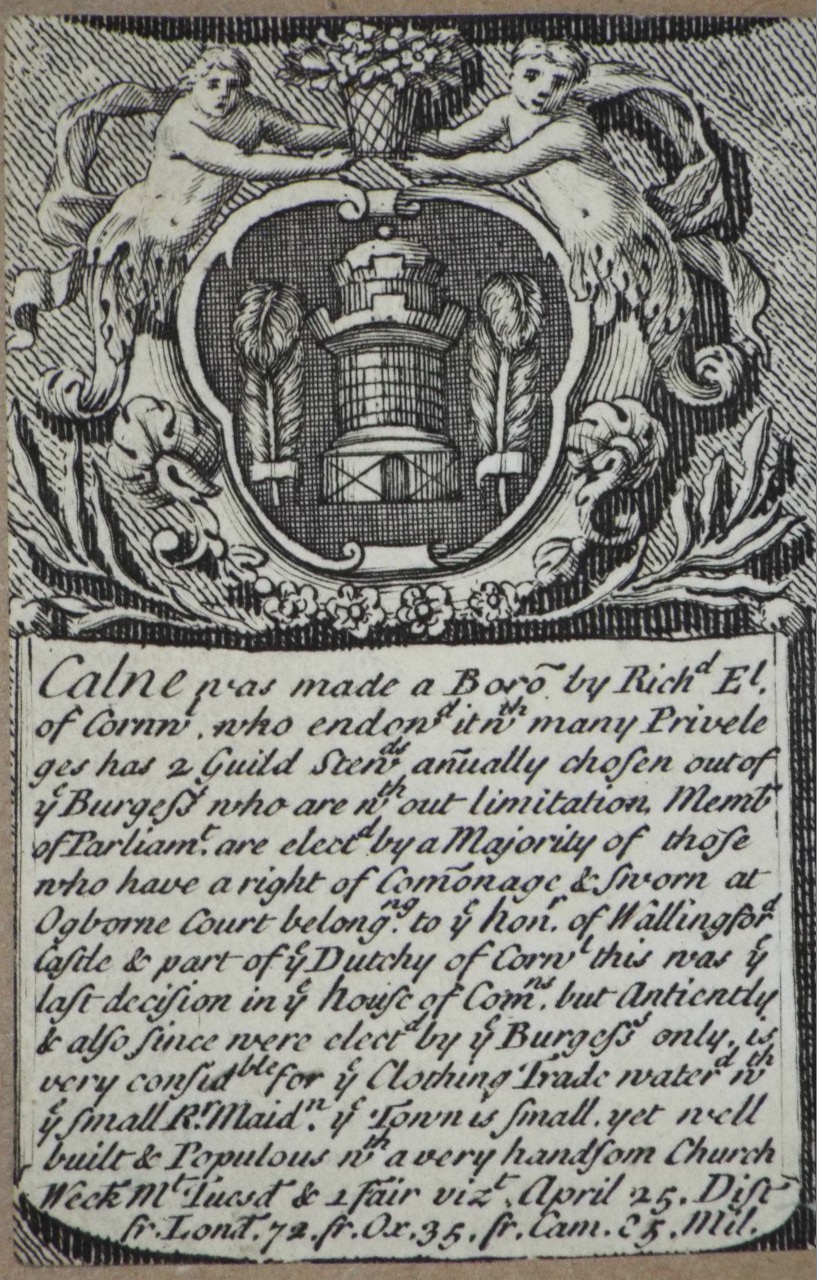 Calne was made a Borõ by Richᵈ Eˡ.
of Cornwˡ. who endowᵈ it wᵗʰ many Privele
ges has 2 Guild Stewᵈˢ añually choſen out of
yᵉ Burgeſsˢ who are wᵗʰ out limitation. Membˢ
of Parliamᵗ. are electᵈ by a Majority of thoſe
who have a right of Com̃onage & Sworn at
Ogborne Court belongⁿᵍ. to yᵉ honʳ. of Wallingforᵈ
Caſtle & part of yᵉ Dutchy of Cornwˡ this was yᵉ
laſt deciſion in yᵉ houſe of Comⁿˢ. but Antiently
& alſo ſince were electᵈ by yᵉ Burgeſsˢ only. is
very conſidᵇˡᵉ for yᵉ Clothing Trade waterᵈ wᵗʰ
yᵉ ſmall Rʳ. Maidⁿ. yᵉ Town is ſmall. yet well
built & Populous wᵗʰ a very handſom Church
Week Mᵗ Tuesd & 1 Fair vizᵗ. April 25. Diſt
fr. Lond. 72. fr. Ox. 35. fr. Cam. 85. Mil.